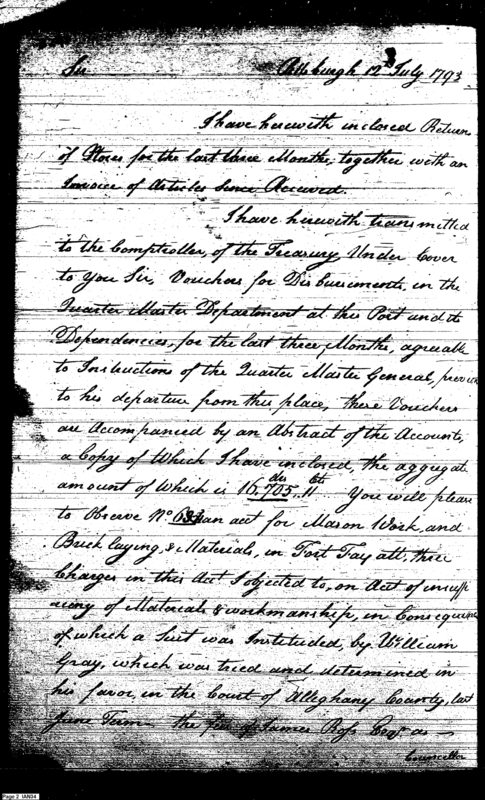 Sir Pittsburgh 12th July 1793
I have herewith inclosed Return
of Stores for the last three Months, together with an
Invoice of Articles Since Received.
I have herewith transmitted
to the Comptroller, of the Treasury, Under Cover
to You Sir, Vouchers for Disbursements, in the
Quarter Master Department at this Post and its
Dependencies, for the last three Months, agreeable
to Instructions of the Quarter Master General, previous
to his departure from this place, these Vouchers
are Accompanied by an Abstract of the Accounts,
a Copy of Which I have inclosed, the aggregate
amount of Which is 16,705 drs 11 Cts You will please
to Observe No an acct for Mason Work, and
Brick laying, & Materials, in Fort Fayatt, three
Charges in this Act I objected to, on Act of insuffi
ciency of Materials & workmanship, in Consequence
of which a Suit was Instituded, by William
Gray, which was tried and determined in
his favor, in the Court of Alleghany County, last
June Term the fee of James Ross Esqr as
Councellor
Page 2 IAN04